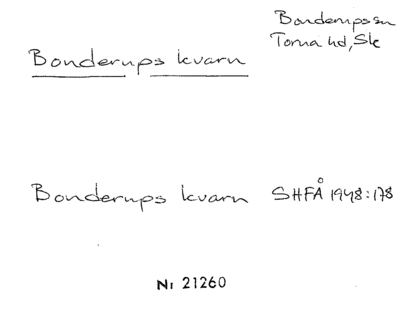 Bonderups sn
Torna hd, Sk
Bonderups kvarn
Bonderups kvarn SHFÅ 1948:178
Nr 21260